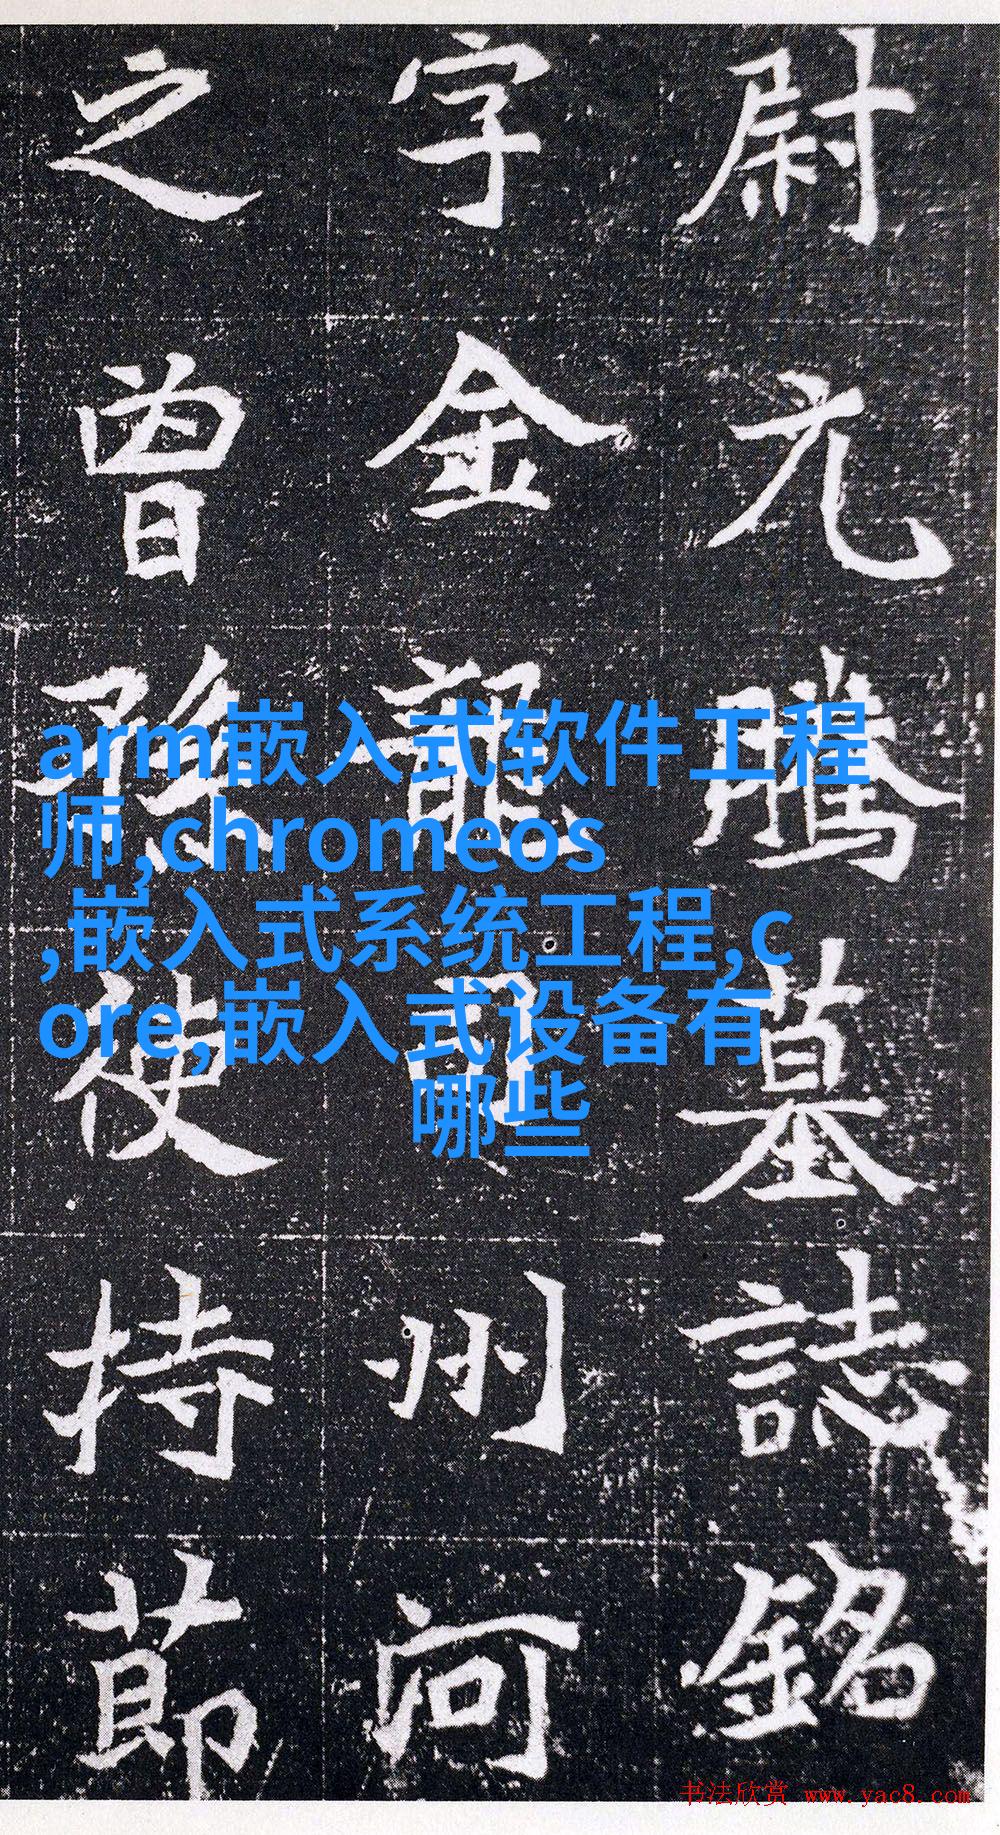 尉元騰墓誌銘
字金龍司州河
之曾孫使持節
arm嵌入式软件工程
师,chromeos
,嵌入式系统工程,c
ore,嵌入式设备有
哪些
书法欣赏 www.yac8.com